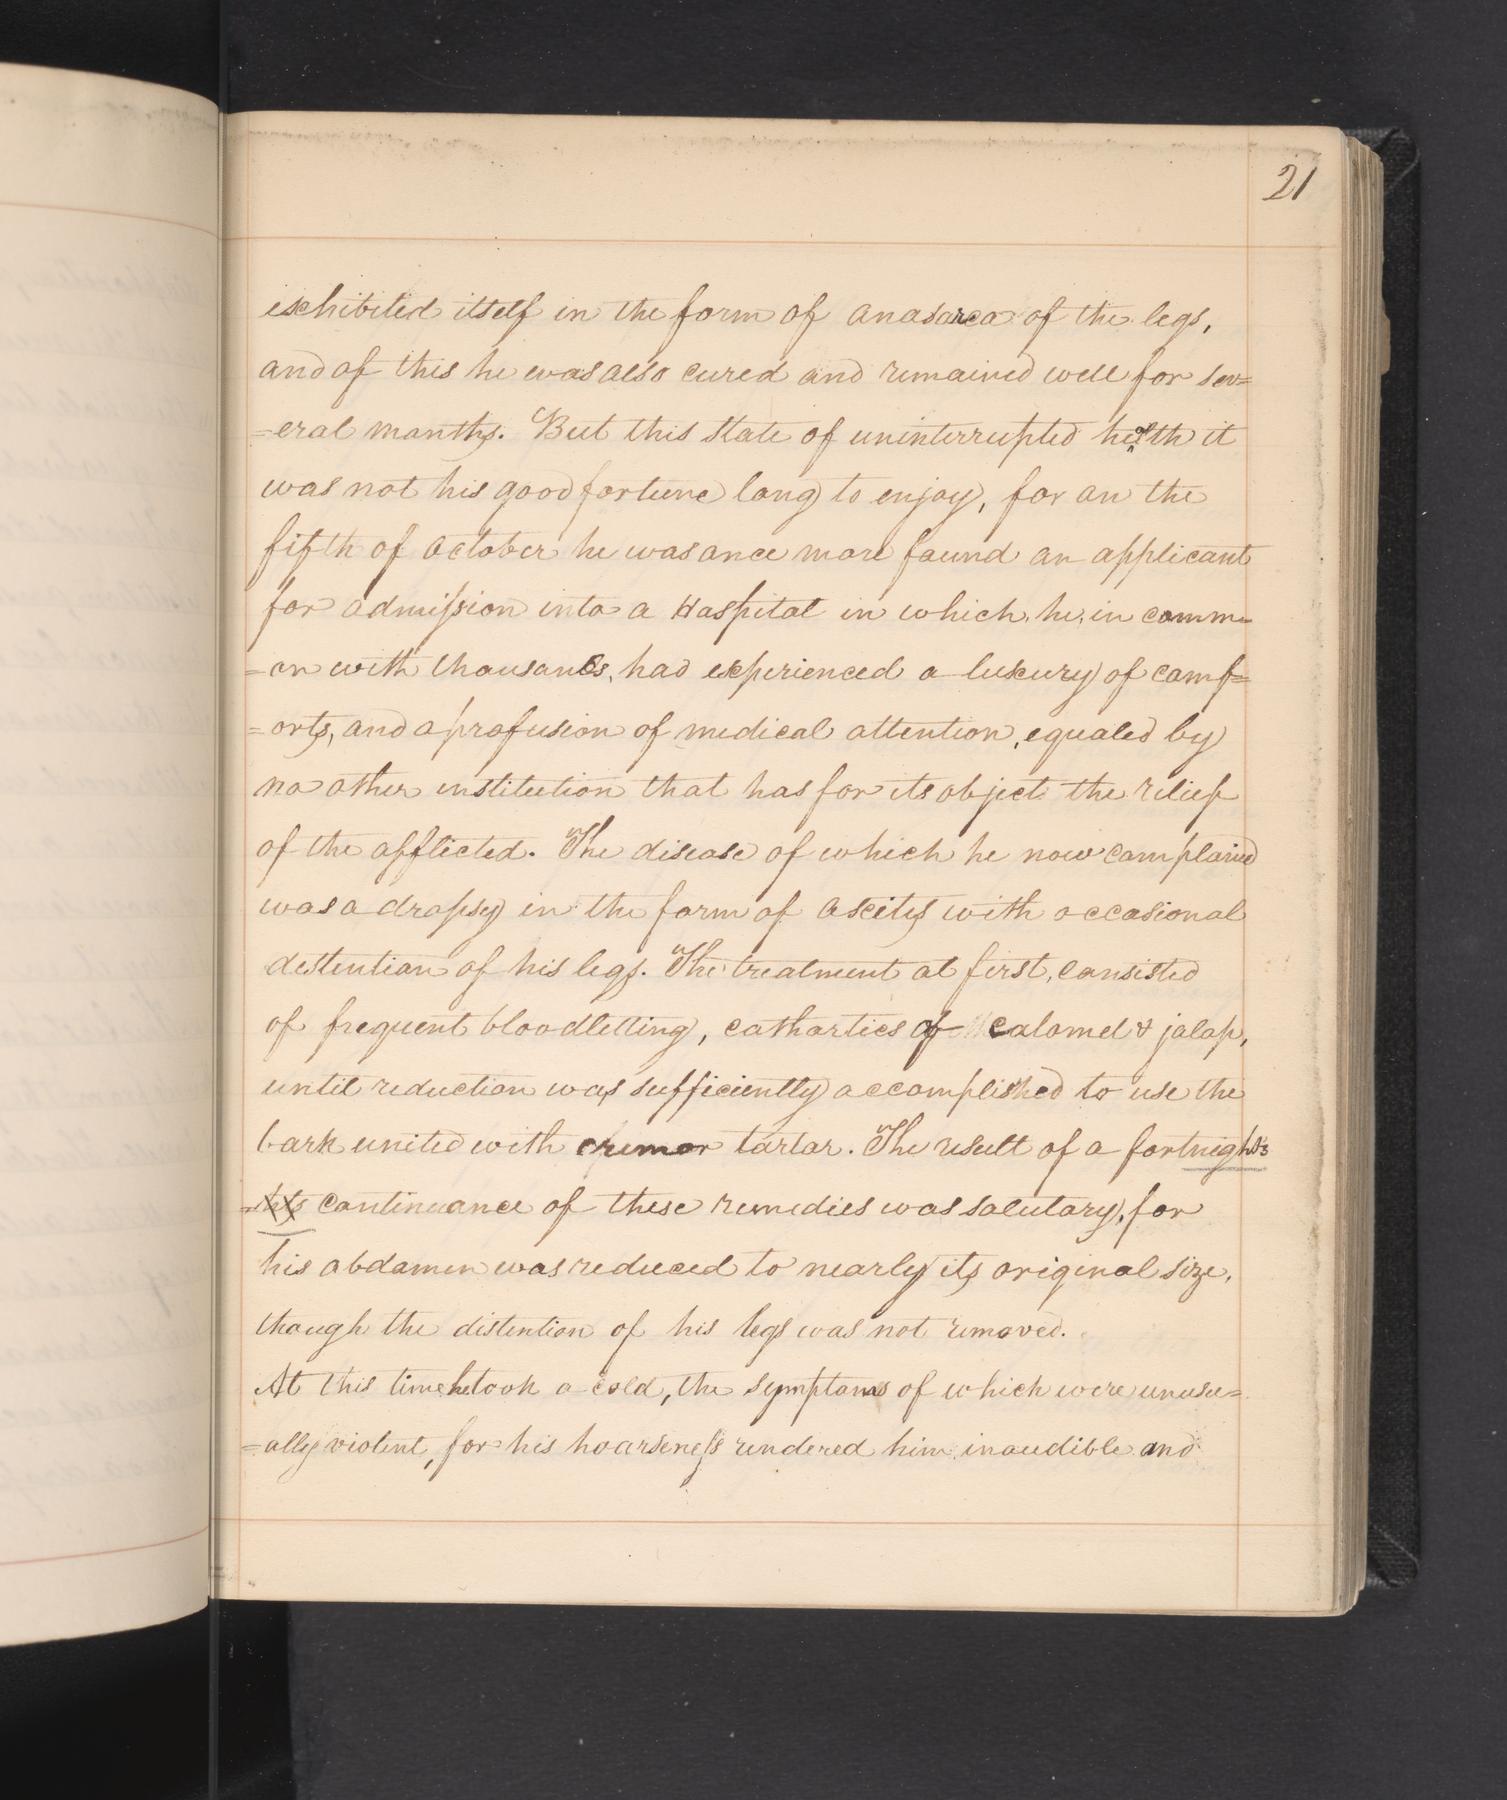 21
exhibited itself in the form of anasarca of the legs,
and of this he was also cured and remained well for sev=
=eral months. But this state of uninterrupted health it
was not his good fortune long to enjoy, for on the
fifth of October he was once more found an applicant
for admission into a Hospital in which, he, in comm=
=on with thousands, had experienced a luxury of comf=
=orts, and a profusion of medical attention, equaled by
no other institution that has for its object the relief
of the afflicted. The disease of which he now complained
was a dropsy in the form of Ascitys with occasional
destention of his legs. The treatment at first, consisted
of frequent bloodletting, cathartics of calomel & jalap,
until reduction was sufficiently accomplished to use the
bark united with cremor tartar. The result of a fortnight's
=hts continuance of these remedies was salutary, for
his abdomen was reduced to nearly its original size,
though the distention of his legs was not removed.
At this time he took a cold, the symptoms of which were unusu=
=ally violent, for his hoarseness rendered him inaudible and